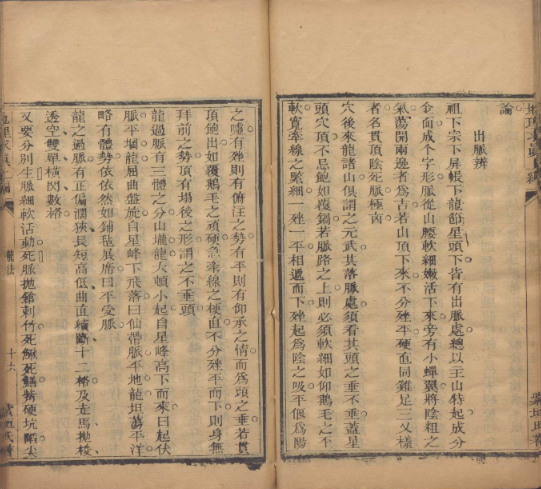 論
出脈辨
祖下宗下屏帳下龍節星頭下皆有出脈處總以主山特起成分
金面成个字形脈從山腰軟細嫩活下來旁有小蟬翼將陰粗之
氣蕩開兩邊者為吉若山頂下來不分硬直同錐足三义樣
者名貫頂陰死脈極凶
穴後來龍諸山俱謂之元武其落脈處須看其頭之垂不垂蓋星
頭穴頂不忌飽如覆鍋若脈路之上則必須軟細如仰鵝毛之不
軟寬牽線之緊細一一平相遞而下起為陰之吸平偃為陽
之噓有則有俯注之勢有平則有仰承之情而為頭之垂若貫
頂飽出如覆鵝毛之頑硬急牽線之梗直不分平而下則身無
拜前之勢頂有塌後之形謂之不垂頭
龍過脈有三體之分山壠龍大頓小起自星峰高下而來曰起伏
脈平崗龍屈曲盤旋自星峰下飛落曰仙帶脈平地龍坦蕩平洋
略有體勢依依然如鋪毡展席曰平受脈
龍之過脈有正偏闊狹長短高低曲直續斷十二格及走馬拋梭
透空雙單橫閃數格
又要分別生脈細軟活動死脈拋鎗剌竹死鰍死鱔硬坑陷尖
十六